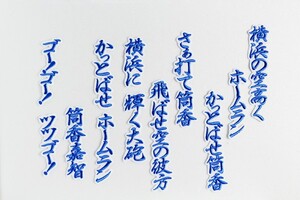 横浜の空高く
ホームラン
かっとばせ筒香
さあ打て筒香
飛ばせ空の彼方
横浜に 輝く大砲
かっとばせ ホームラン
筒香嘉智
ゴー!ゴー! ツツゴー!